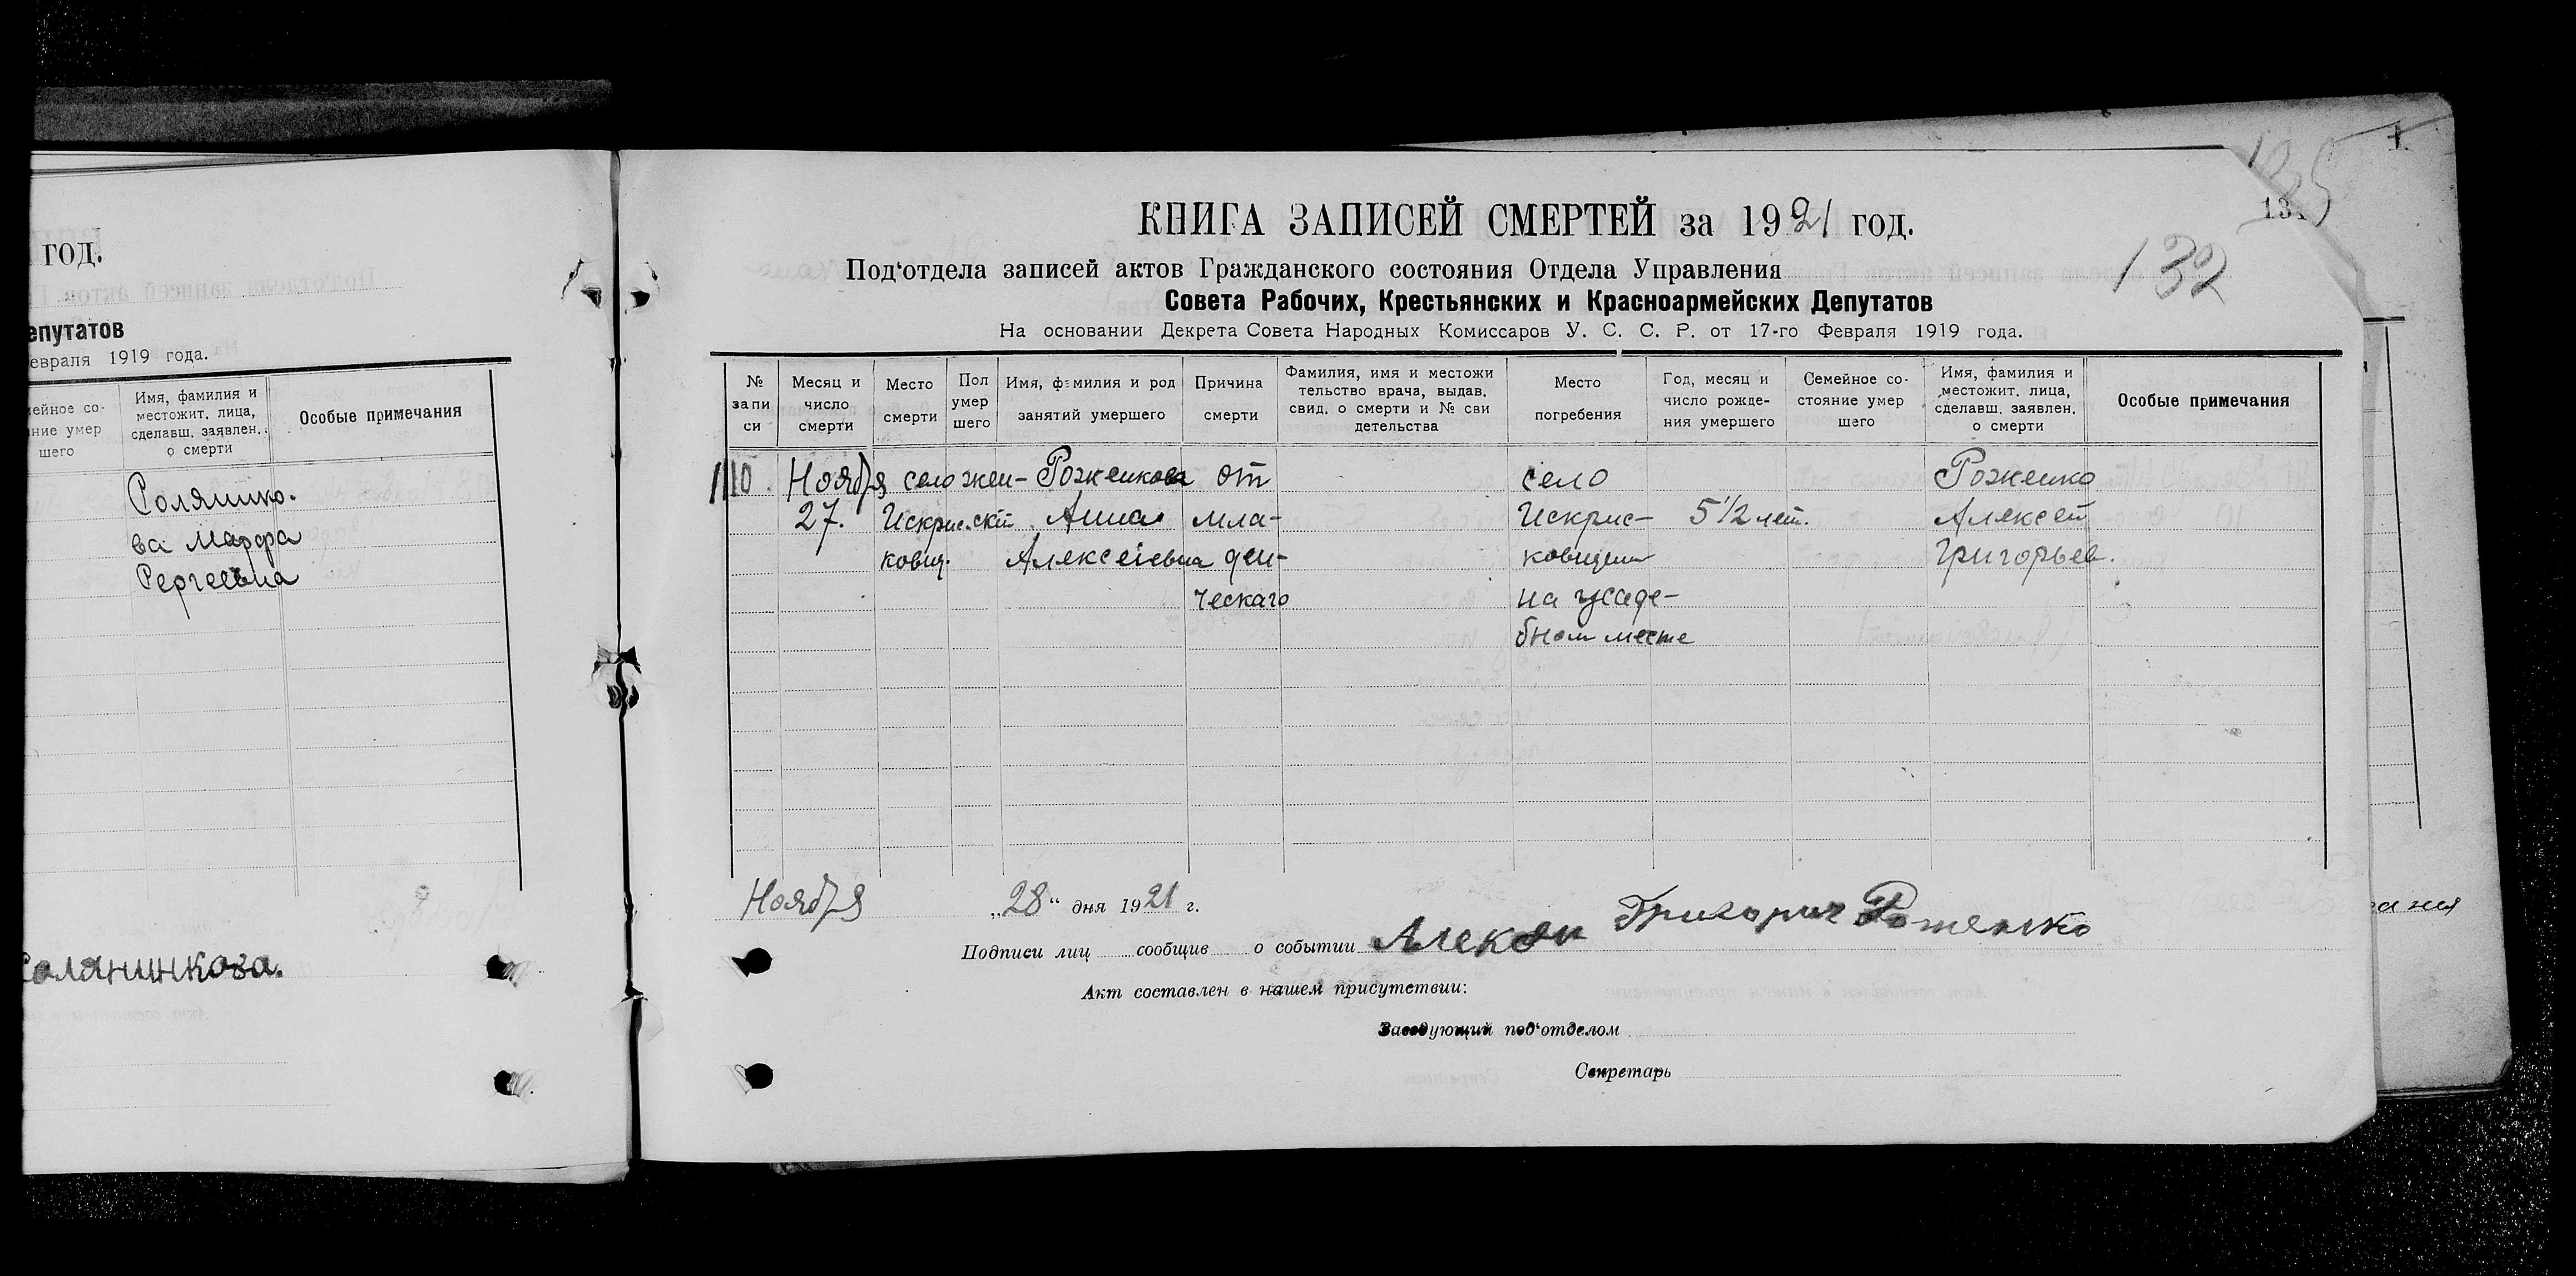 год.
епутатов
евраля 1919 года.
ейное со-
ние умер
шего
Имя, фамилия и
местожит. лица,
сделавш. заявлен.
о смерти
Особые примечания
Солянико-
ва Марфа
Сергеевна
Солянинкова.
КНИГА ЗАПИСЕЙ СМЕРТЕЙ за 1921 год.
132
Под‘отдела записей актов Гражданского состояния Отдела Управления
Совета Рабочих, Крестьянских и Красноармейских Депутатов
На основании Декрета Совета Народных Комиссаров У. С. С. Р. от 17-го Февраля 1919 года.
№
запи
си
Месяц и
число
смерти
Место
смерти
Пол
умер
шего
Имя, фамилия и род
занятий умершего
Причина
смерти
Фамилия, имя и местожи
тельство врача, выдав.
свид. о смерти и № сви
детельства
Место
погребения
Год, месяц и
число рожде-
ния умершего
Семейное со-
стояние умер
шего
Имя, фамилия и
местожит. лица,
сделавш. заявлен.
о смерти
Особые примечания
110.
Ноября
27.
село
Искрис-
ковщ.
жен-
ский
Роженкова
Анна
Алексеевна
от
мла-
ден-
ческаго
село
Искрис-
ковщин
на усаде-
бном месте
5 1/2 лет.
Роженко
Алексей
Григорьев.
Ноября „28“ дня 1921 г.
Подписи лиц сообщив о событии Алексей Григорич Роженко
Акт составлен в нашем присутствии:
Заведующий под‘отделом
Секретарь